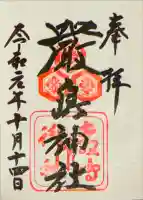 奉拝
嚴島神社
令和元年十月十四日